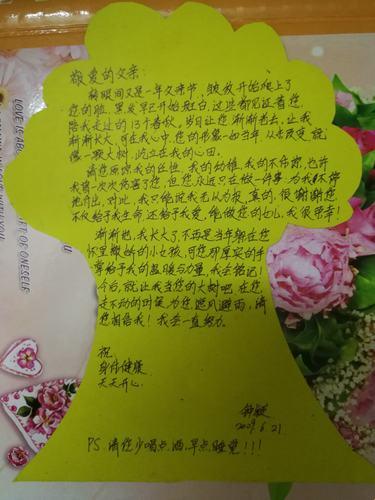 敬爱的父亲：
转眼间又是一年父亲节，皱纹开始爬上了
您的脸，黑发早已开始斑白，这些都见证着您
陪我走过的13个春秋。岁月让您渐渐老去，让我
渐渐长大，可在我心中，您的形象一如当年，从未改变，就像
一颗大树，屹立在我的心田。
请您原谅我的任性，我的幼稚，我的不作为，也许
我曾一次次伤害了您，但您永远只在做一件事：为我不停
地付出，对此，我只能说我无以为报，真的，很谢谢您
不仅给予我生命，还给予我爱，能做您的女儿，我很荣幸！
渐渐地，我长大了，不再是当年躲在您
怀里撒娇的小女孩，可您那厚实的手
掌给予我的温暖与力量，我会铭记！
今后，就让我当您的大树吧，在您
走不动的时候，为您遮风避雨，请
您相信我！我会一直努力。
祝
身体健康
天天开心.
2009.6.21
PS 请您少喝点酒，早点睡觉！！！
LOVE IS A
ART OF ONESELF